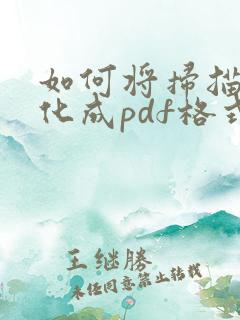 如何将扫描
化成pdf格式
王继勝
未经同意禁止转载